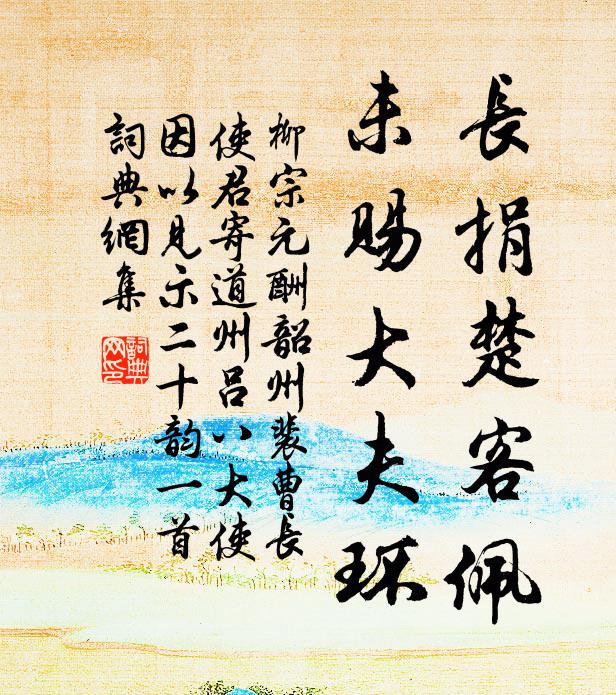 長捐楚客佩
未賜大夫环
柳宗元酬韶州裴曹長
使君寄道州吕八大使
因以見示二十韵一首
詞典網集
詞典
网印